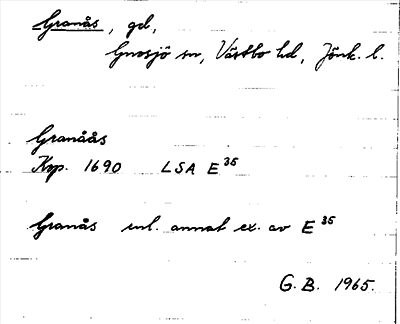 Granås, gd,
Gnosjö sn, Västbo hd, Jönk. l.
Granåås
Krp. 1690 LSA E 35
Granås enl. annat ex. av E 35
G. B. 1965.